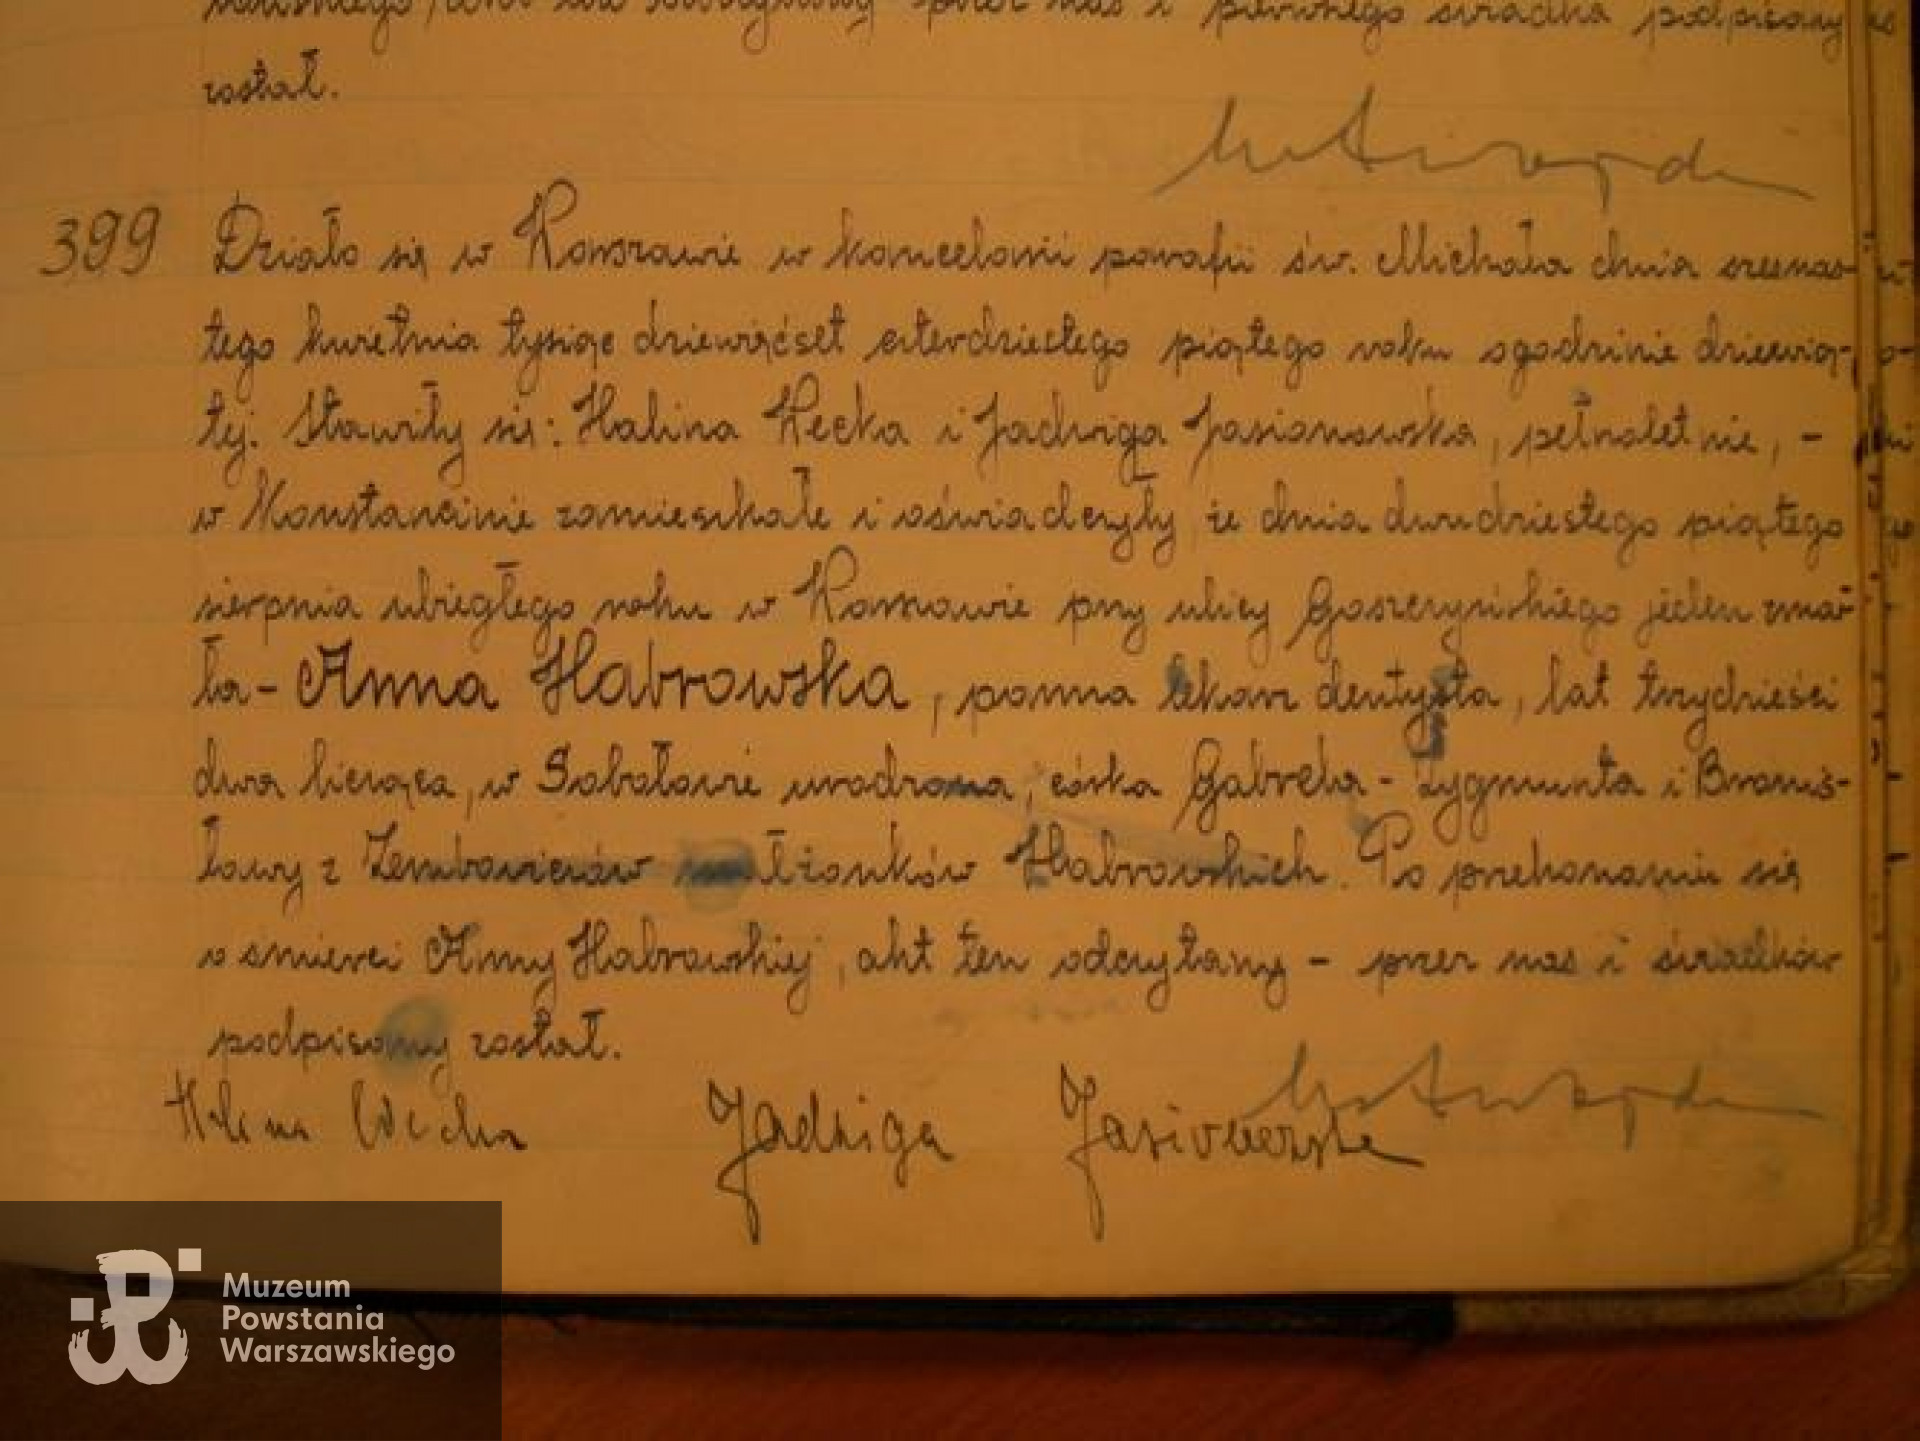 przez nas i pierwszego świadka podpisany
został.
399
Działo się w Warszawie w kancelarii parafii św. Michała dnia szesnas-
tego kwietnia tysiąc dziewięćset czterdziestego piątego roku o godzinie dziewią-
tej. Stawiły się: Halina Wecka i Jadwiga Jasionowska, pełnoletnie, -
w Konstancinie zamieszkałe i oświadczyły że dnia dwudziestego piątego
sierpnia ubiegłego roku w Warszawie przy ulicy Goszczyńskiego jeden zmar-
ła - Anna Habrowska, panna lekarz dentysta, lat trzydzieści
dwa licząca, w Sobolowie urodzona, córka Gabriela - Zygmunta i Bronis-
ławy z małżonków Habrowskich. Po przekonaniu się
o śmierci Anny Habrowskiej, akt ten odczytany - przez nas i świadków
podpisany został.
Halina Wecka Jadwiga Jasionowska
Muzeum
Powstania
Warszawskiego